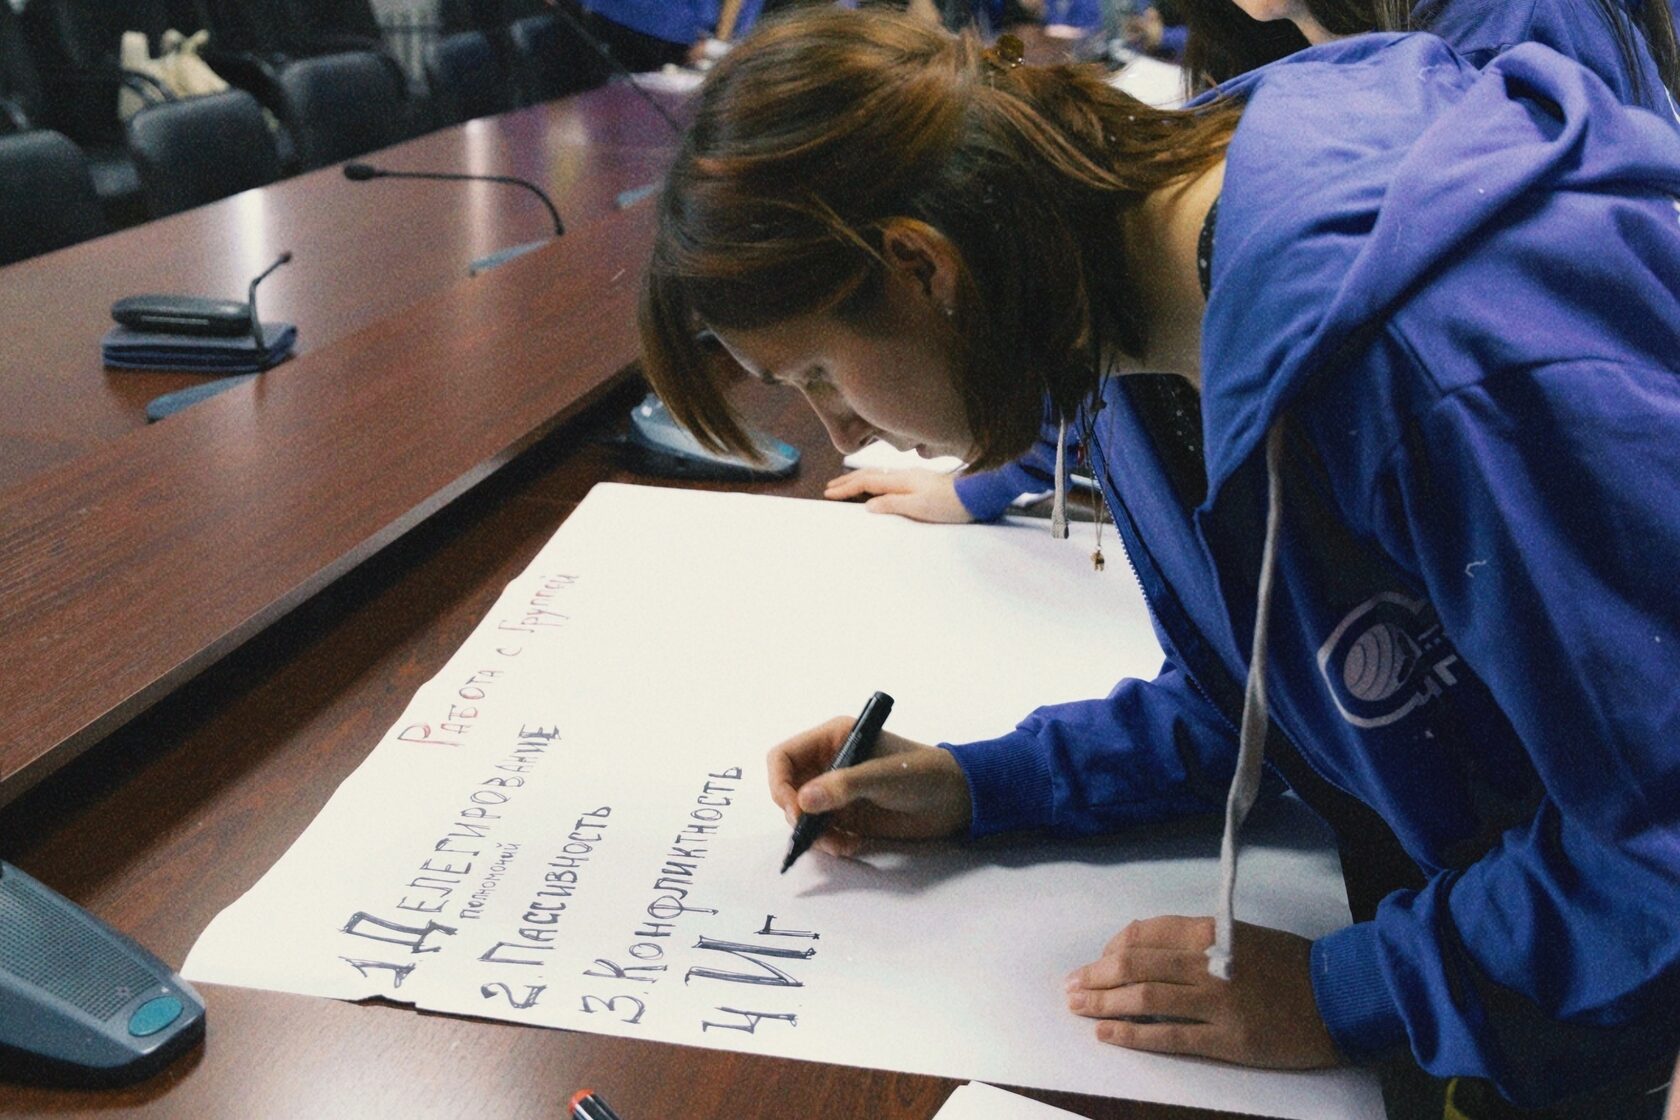 Работа с Группой
1 Делегирование
полномочий
2. Пассивность
3. Конфликтность
4 Иг